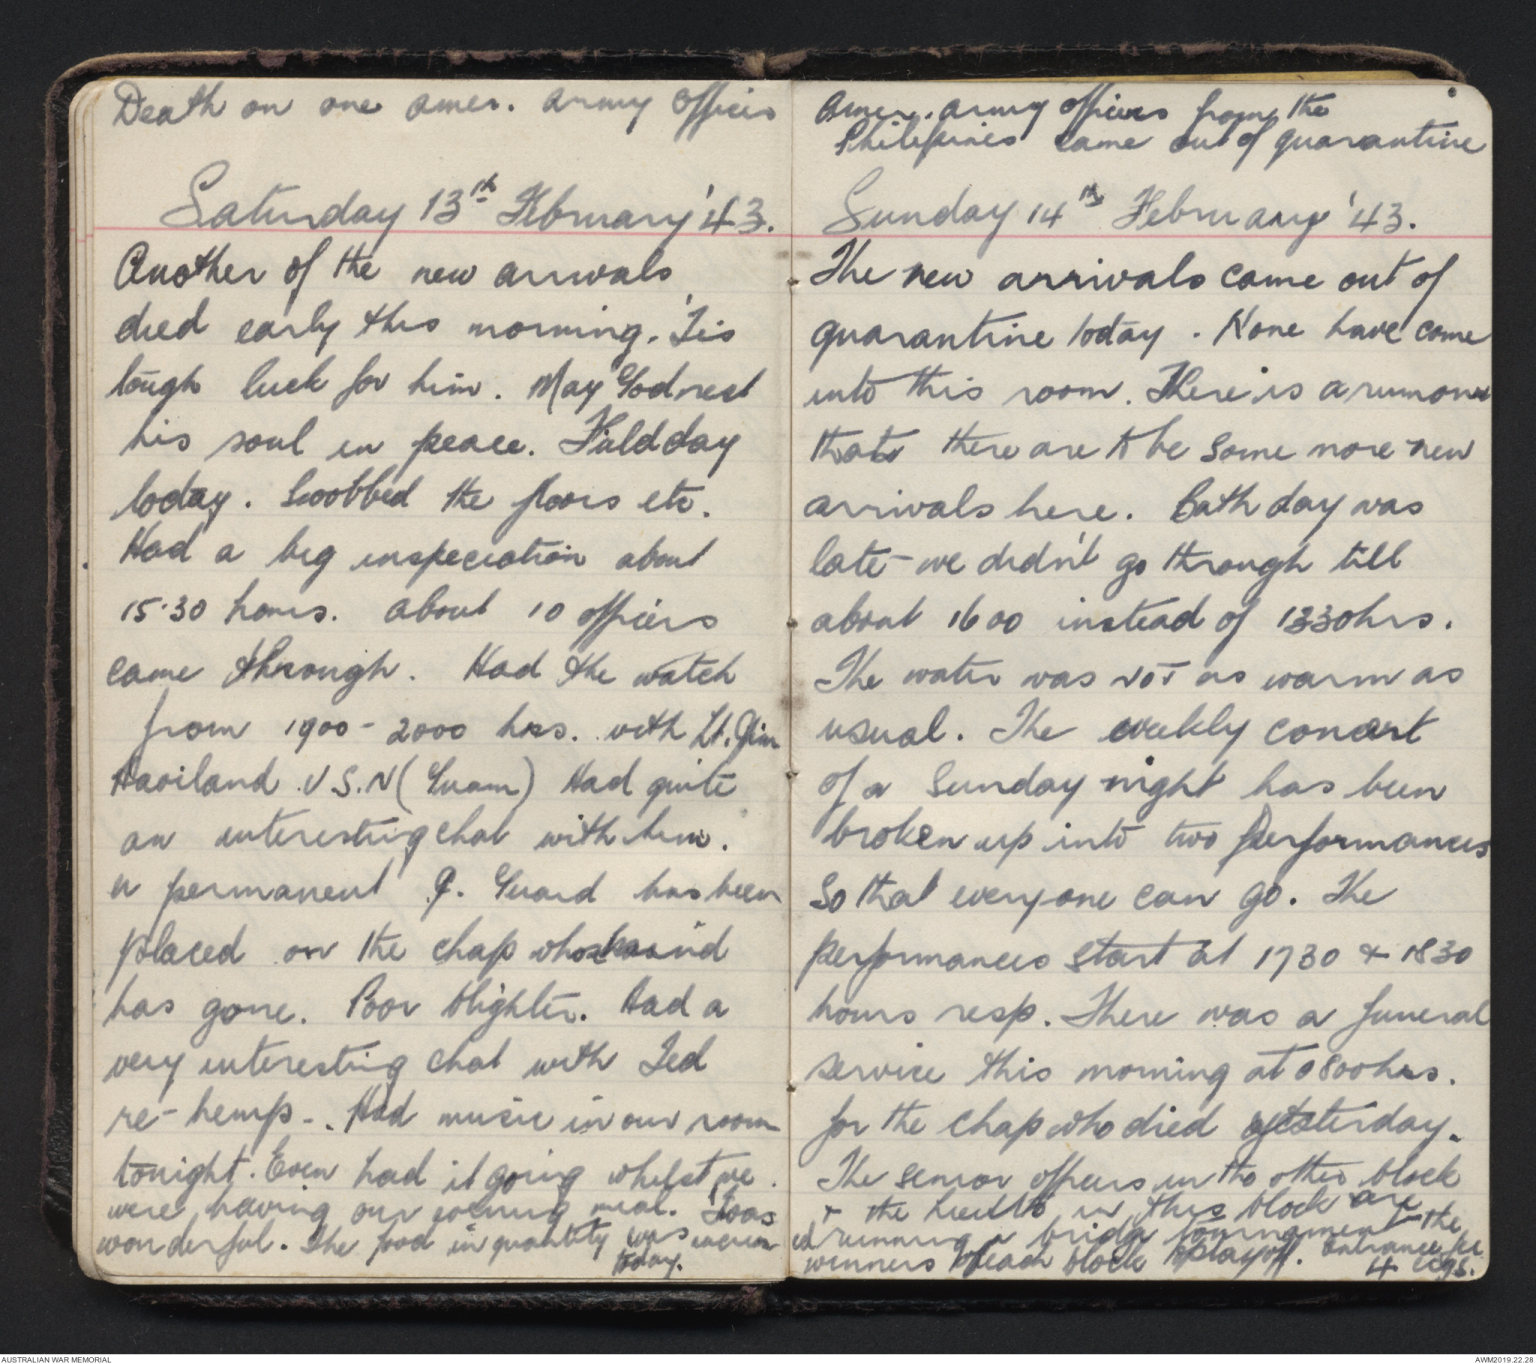 Death on one amer. army officer
Saturday 13th February '43.
Another of the new arrivals
died early this morning. 'Tis
tough luck for him. May God rest
his soul in peace. Field day
today. Swobbed the floors etc.
Had a big inspeciation about
15.30 hours. About 10 officers
came through. Had the watch
from 1900 - 2000 hrs. with Lt. Jim
Haviland U.S.N (Guam) Had quite
an interesting chat with him.
a permanent J. Guard has been
placed on the chap whose mind
has gone. Poor blighter. Had a
very interesting chat with Ted
re - hemp -. Had music in our room
tonight. Even had it going whilst we
were having our evening meal. 'Twas
wonderful. The food in quantity was
today.
Amer. army officers from the
Philipines came out of quarantine
Sunday 14th February '43.
The new arrivals came out of
quarantine today. None have come
into this room. There is a rumour
that there are to be some more new
arrivals here. Bath day was
late - we didn't go through till
about 1600 instead of 1330hrs.
The water was not as warm as
usual. The weekly concert
of a Sunday night has been
broken up into two performances
so that everyone can go. The
performances start at 1730 + 1830
hours resp. There was a funeral
service this morning at 0800hrs.
for the chap who died yesterday.
The senior officers in the other block
+ the in this block are
running a bridge tournament - the
winners of each block to play off. Entrance fee
4 cigs.
AUSTRALIAN WAR MEMORIAL
AWM2019.22.28